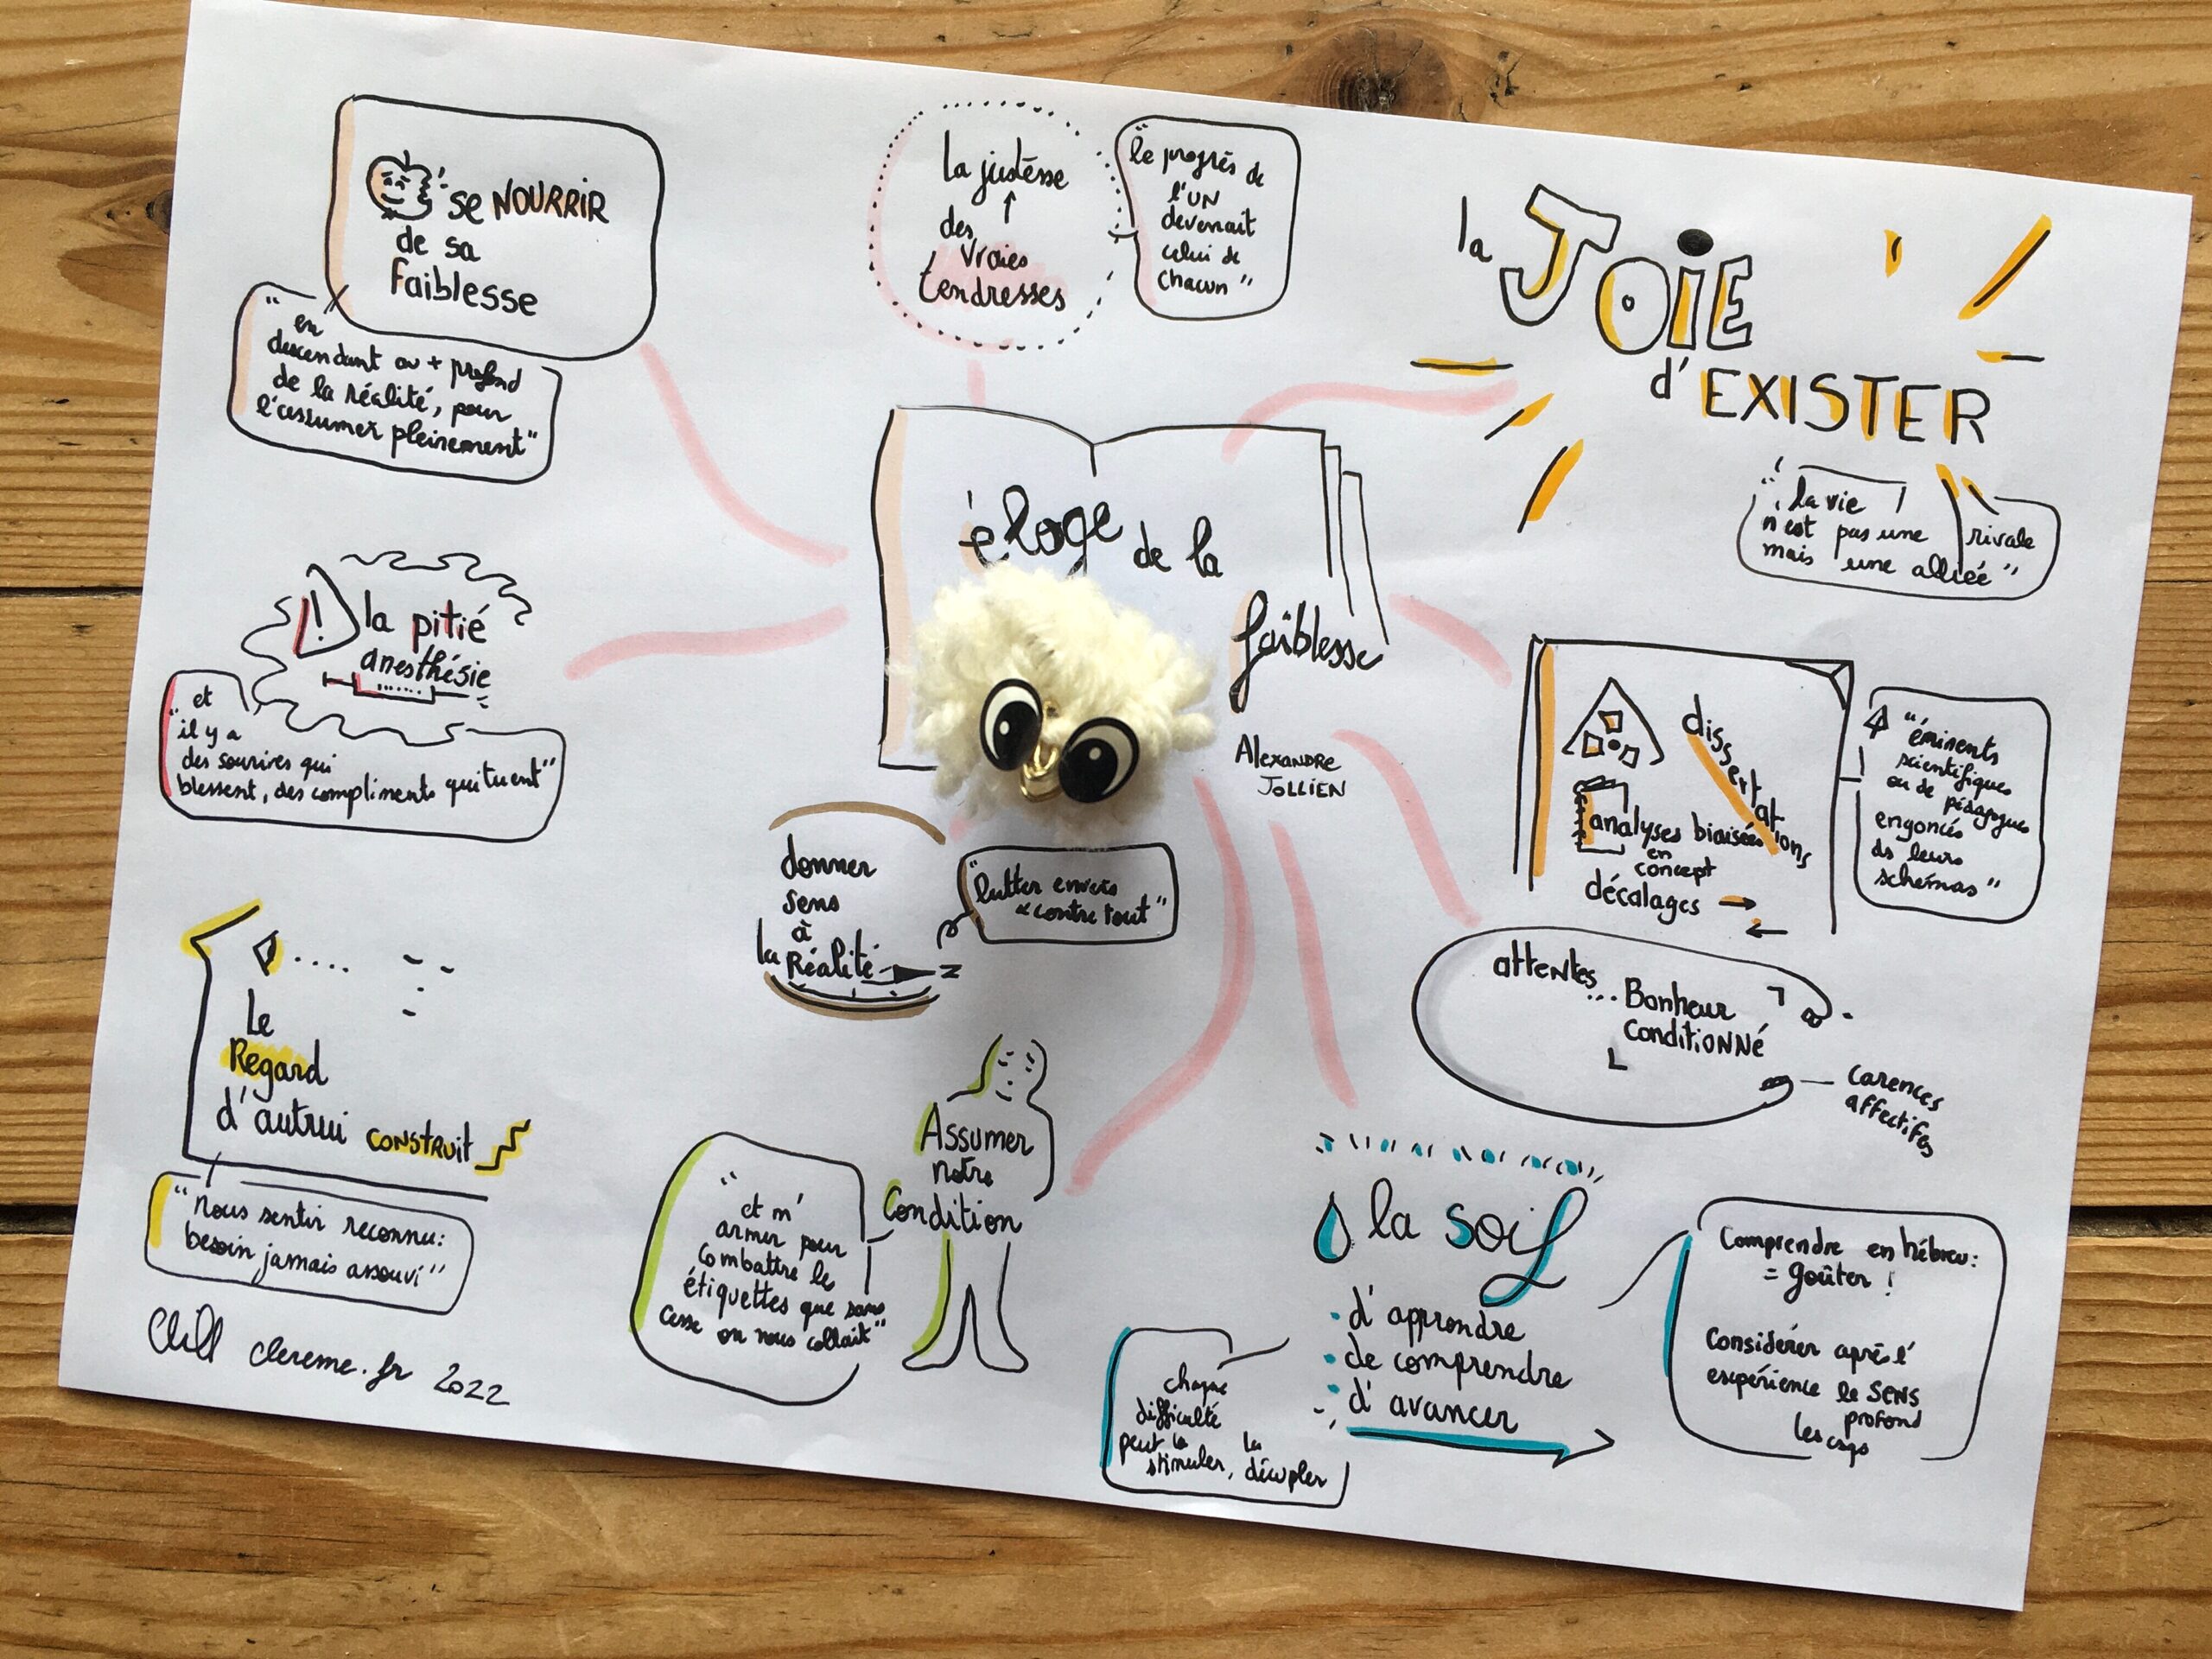 se NOURRIR
de sa
faiblesse
"en
descendant au + profond
de la réalité, pour
l'assumer pleinement"
la justesse
↑
des
vraies
tendresses
"le progrès de
l'UN
devenait
celui de
chacun"
la JOIE
d'EXISTER
"la vie
n'est pas une rivale
mais une alliée"
éloge de la
faiblesse
Alexandre
JOLLIEN
! la pitié
anesthésie
"et
il y a
des sourires qui
blessent, des compliments qui tuent"
dissertations
analyses biaisées
en
concept
décalages →
←
"éminents
scientifiques
ou de pédagogues
engoncés
ds leurs
schémas"
donner
sens
à
la Réalité
"lutter envers
& contre tout"
attentes
... Bonheur
conditionné
carences
affectifes
Le
Regard
d'autrui construit
"nous sentir reconnu:
besoin jamais assouvi"
Assumer
notre
Condition
"et m'
armer pour
combattre les
étiquettes que sans
cesse on nous collait"
la soif
• d'apprendre
• de comprendre
• d'avancer
chaque
difficulté
peut la
stimuler, la décupler
Comprendre en hébreu:
= goûter !
Considérer après l'
expérience le SENS
profond
clereme.fr 2022